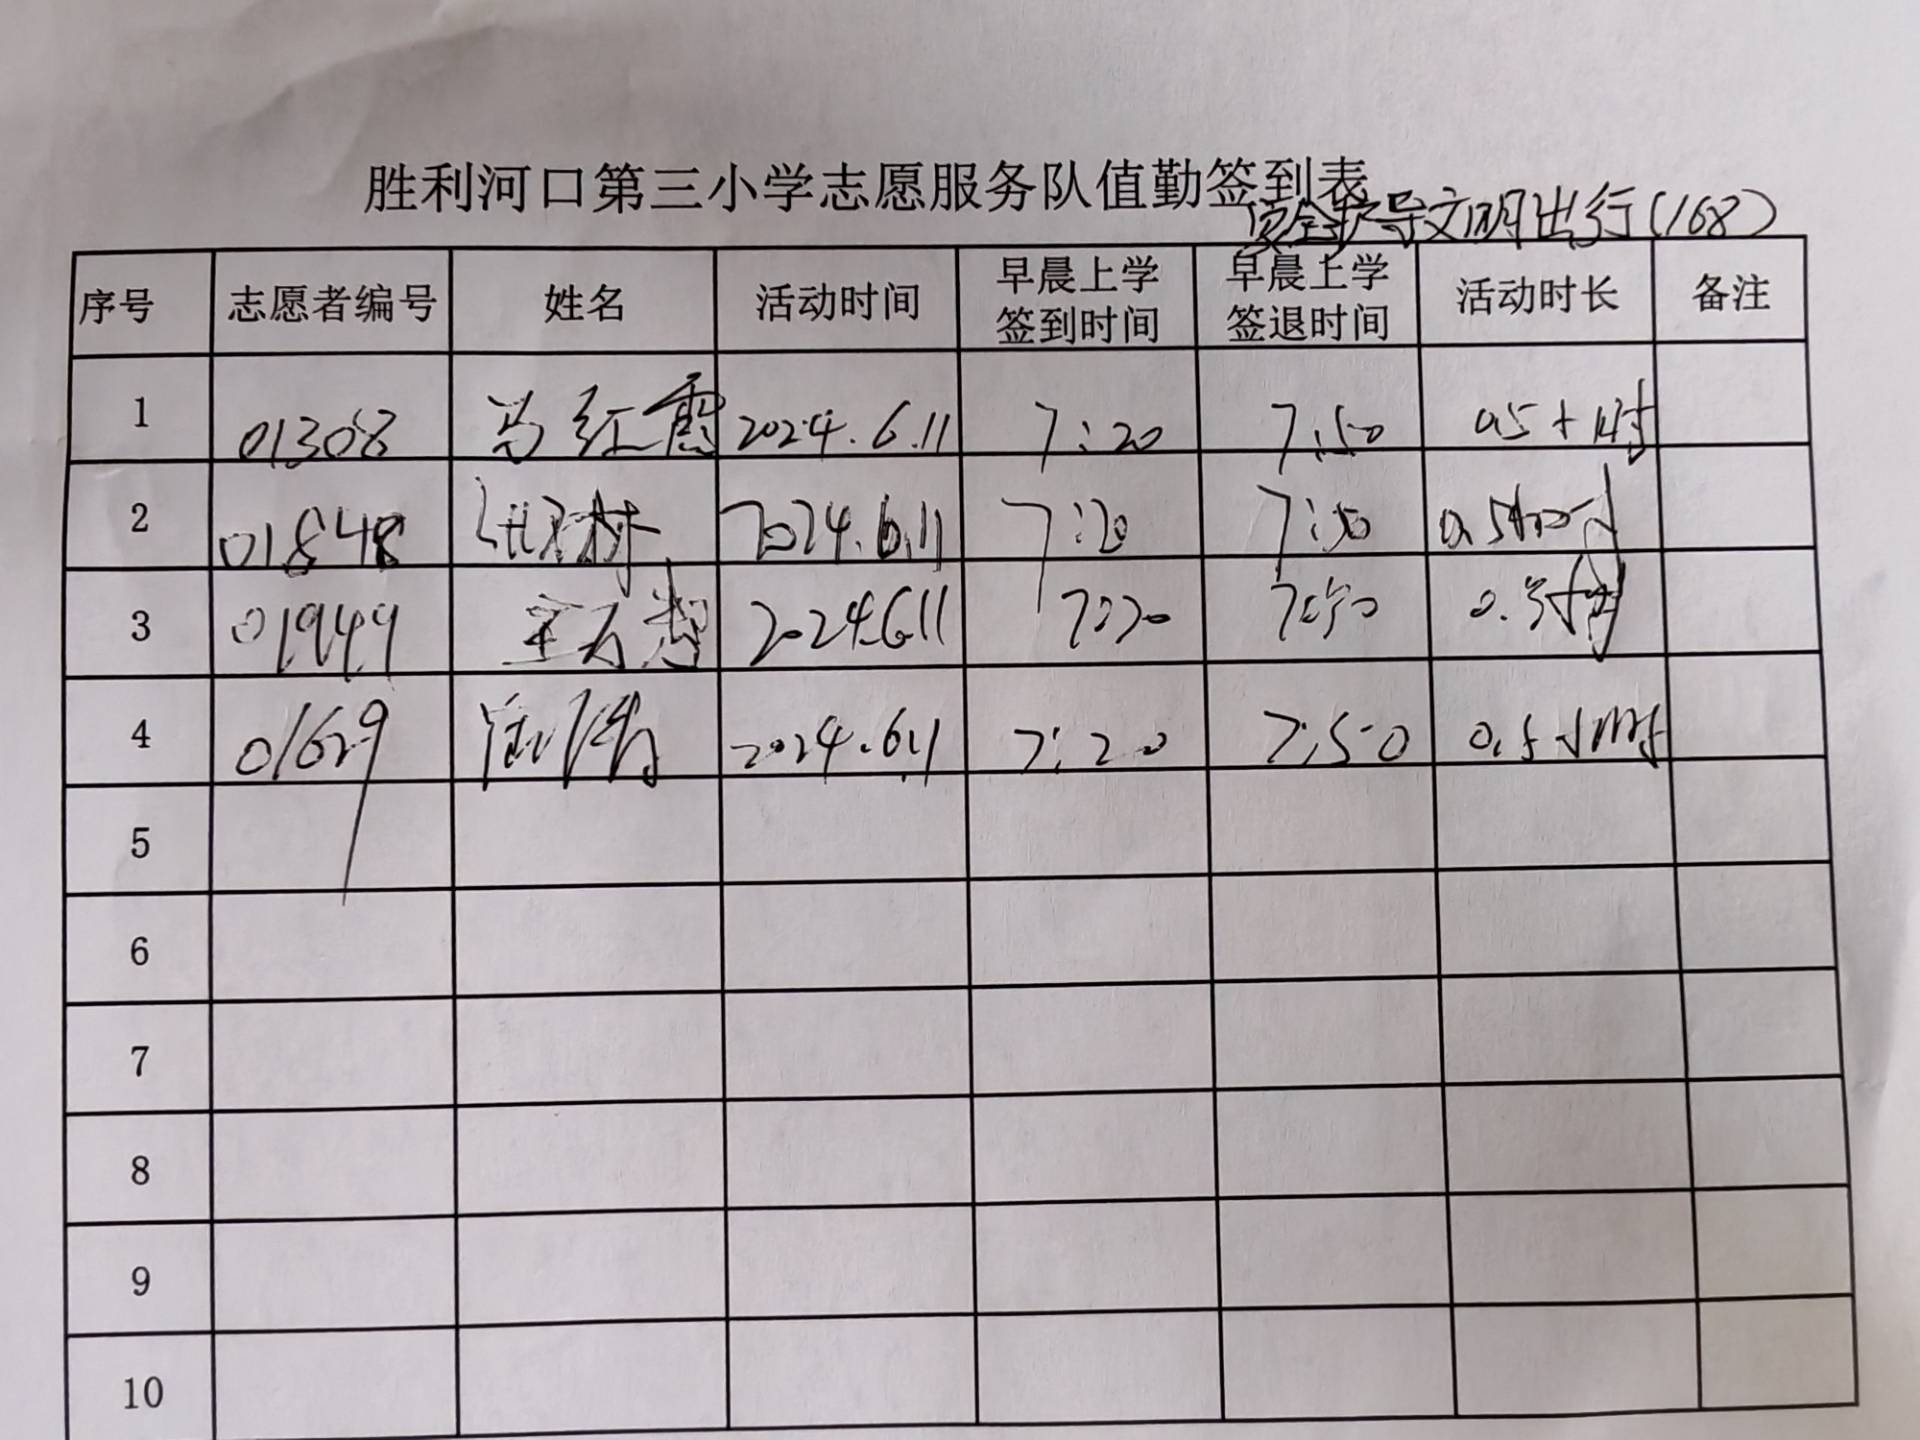 胜利河口第三小学志愿服务队值勤签到表
安全护导文明出行(168)
序号 志愿者编号 姓名 活动时间 早晨上学签到时间 早晨上学签退时间 活动时长 备注
1 01308 马红霞 2024.6.11 7:20 7:50 0.5小时
2 01848 2024.6.11 7:20 7:50 0.5小时
3 01949 2024.6.11 7:20 7:50 0.5小时
4 01629 2024.6.11 7:20 7:50 0.5小时
5
6
7
8
9
10